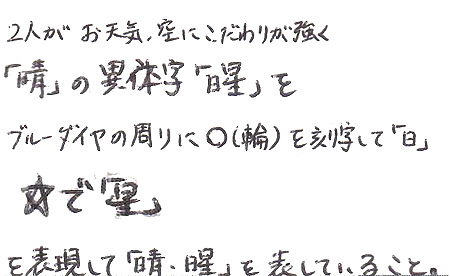 2人が お天気、空にこだわりが強く
「晴」の異体字「暒」を
ブルーダイヤの周りに○(輪)を刻字して「日」
☆で「星」
を表現して「晴・暒」を表していること。